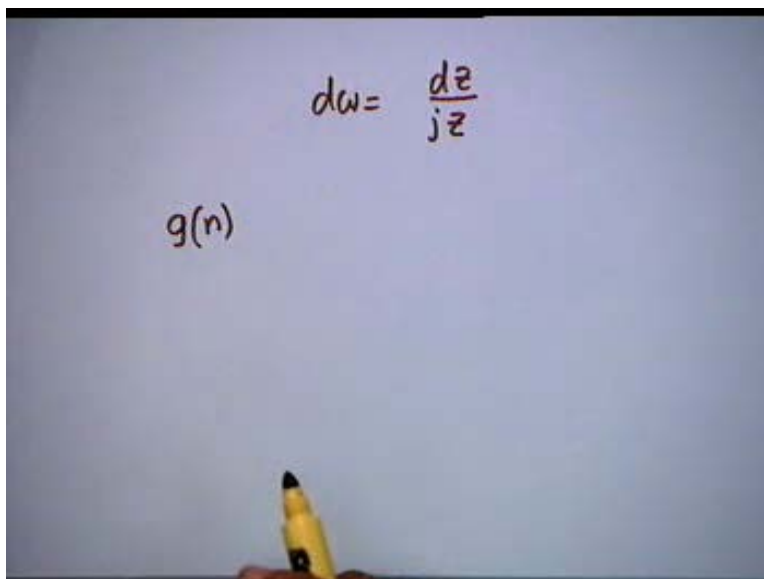 dω = dz/jz
g(n)